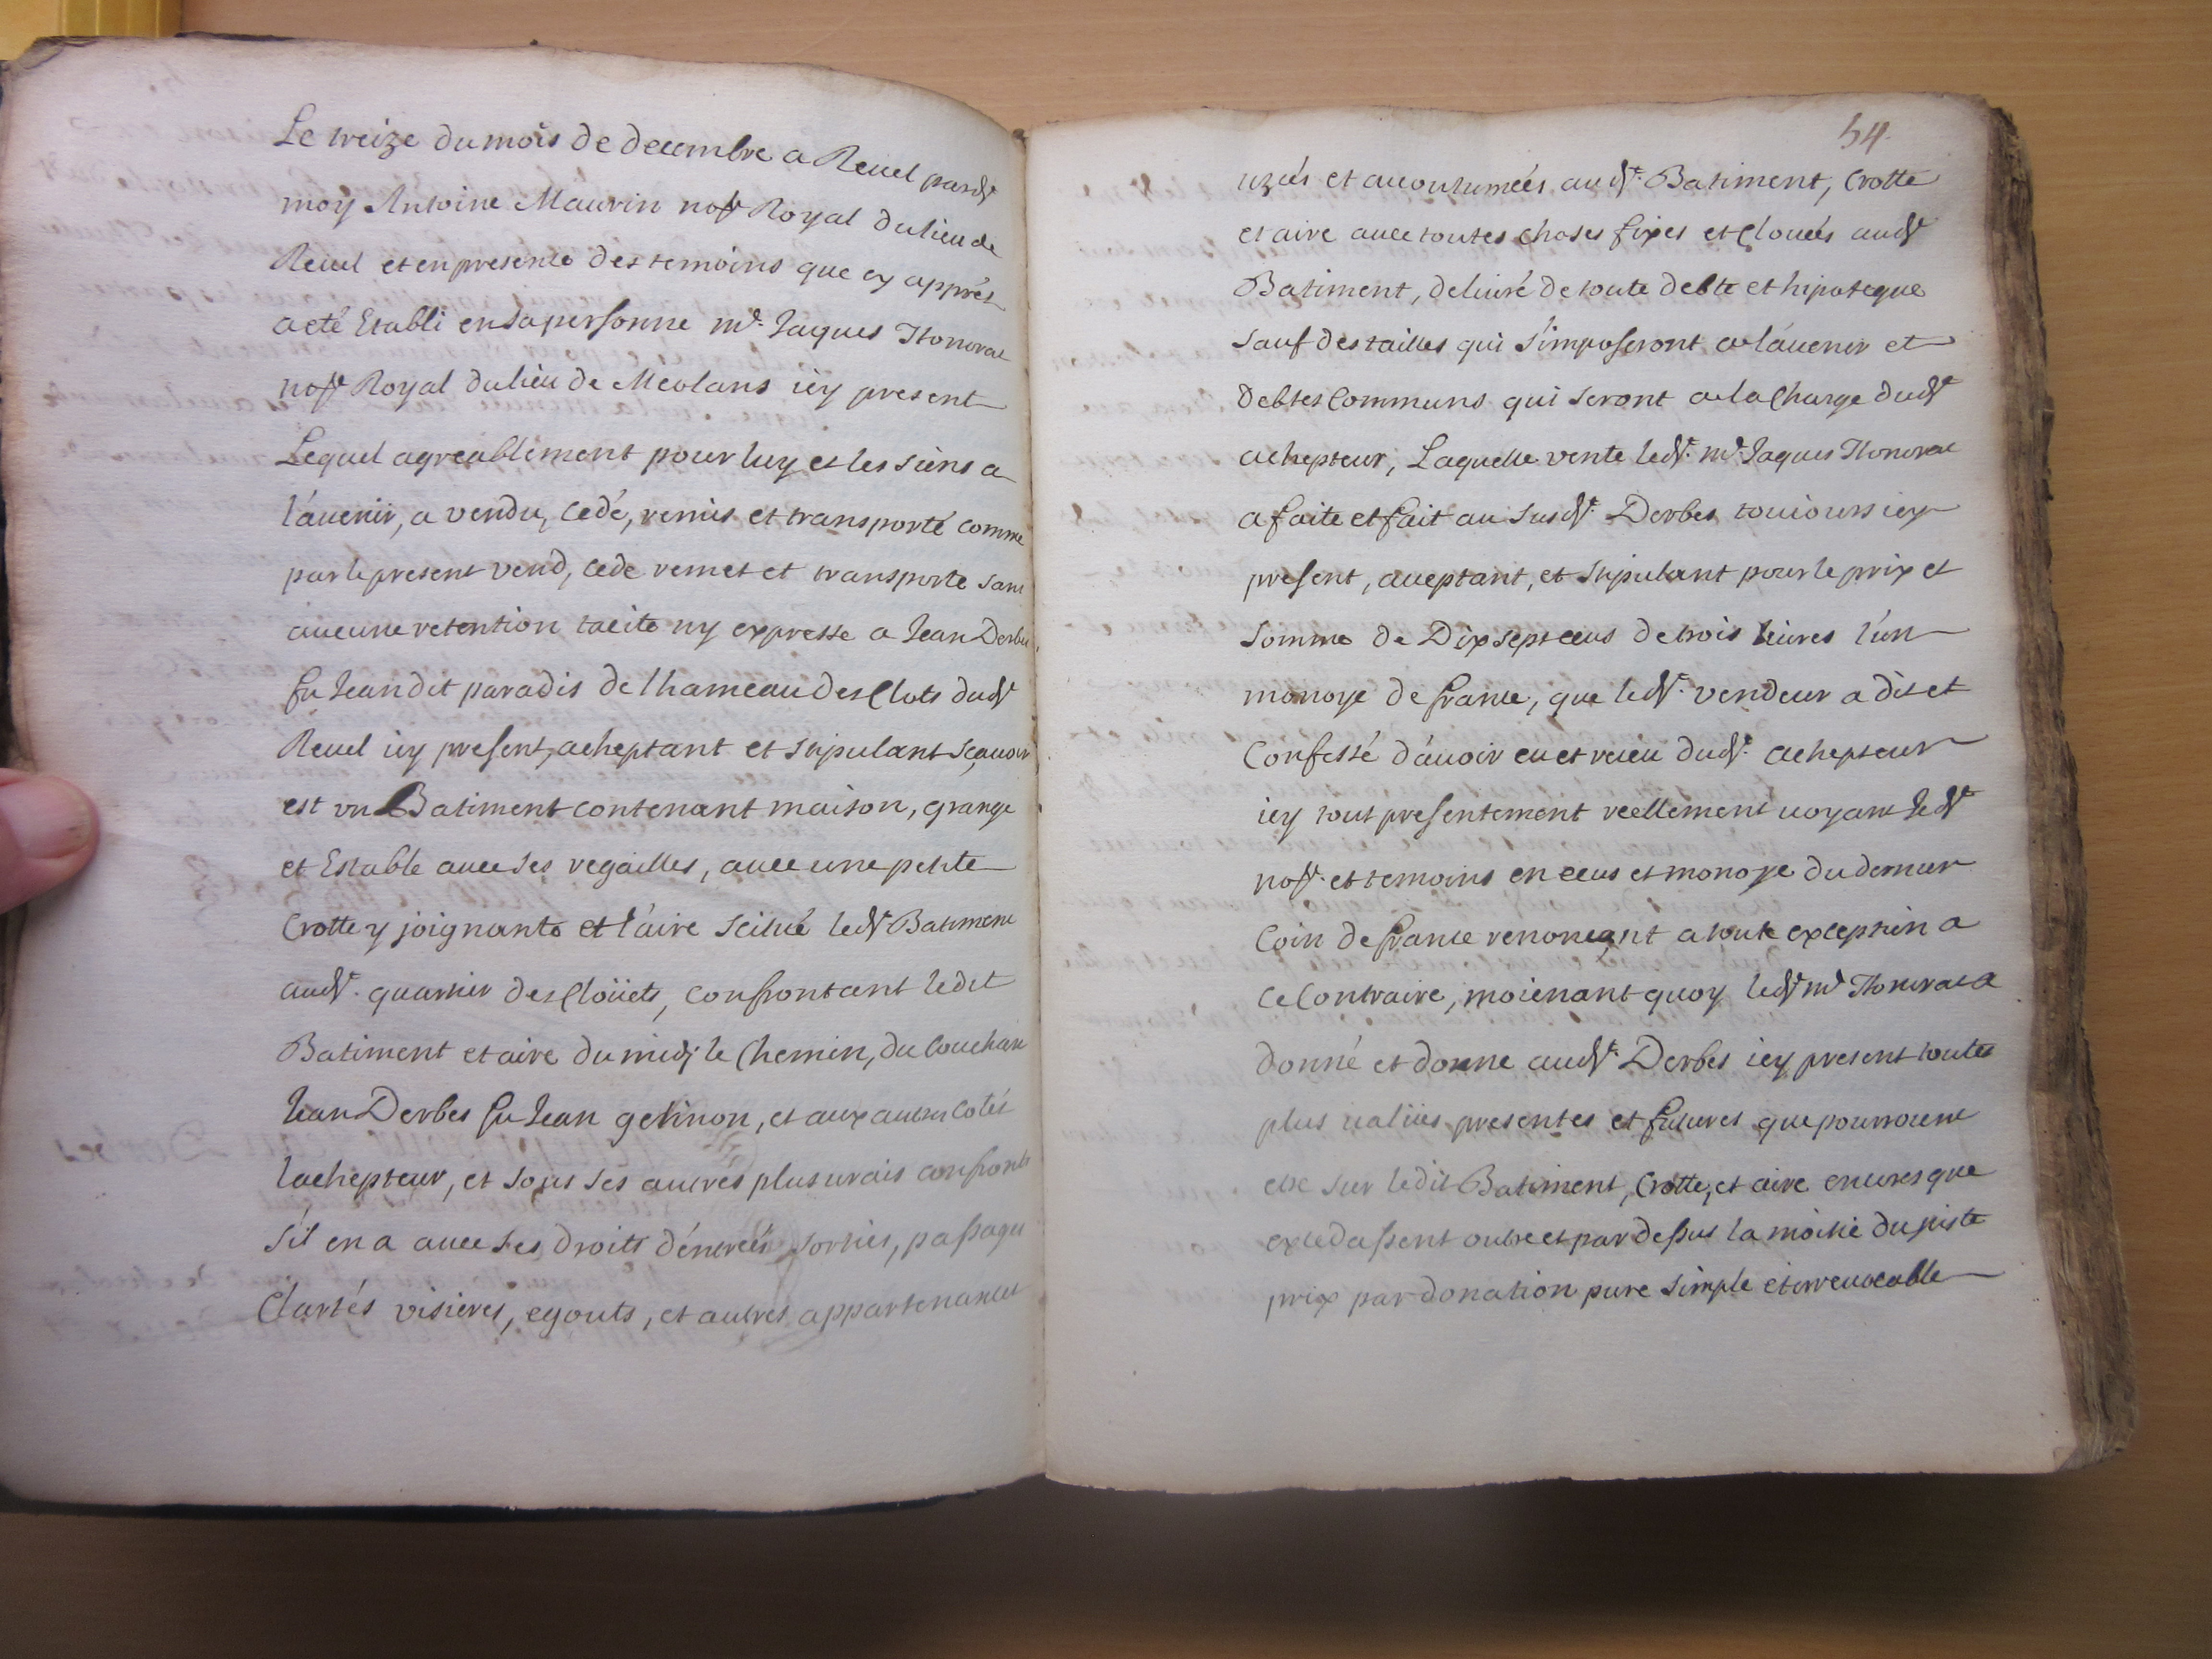 Le treize du mois de decembre a Revel pardt
moy Antoine Maurin nore Royal du lieu de
Revel et en presence des temoins que cy apprés
a eté Etabli en Sa personne me Jaques Honorat
nore Royal du lieu de Meolans icy present
Lequel agreablement pour luy et les siens a
l'avenir, a vendu, cedé, remis et transporté comme
par le present vend, cede remet et transporte sans
aucune retention tacite ny expresse a Jean Derbes
fu Jean dit paradis de lhameau des Clots dudt
Revel icy present, acheptant et stipulant Sçavoir
est un Batiment contenant maison, grange
et Estable avec ses regailles, avec une petite
Crotte y joignante et l'aire Scitué ledt Batiment
audt. quartier des Cloüets, confrontant ledit
Batiment et aire du midj le Chemin, du Couchant
Jean Derbes fu Jean gerinon, et aux autres Cotés
lachepteur, et sous ses autres plus vrais confronts
s'il en a avec ses droits d'éntreés sorties, passages
Clartés visieres, egouts, et autres appartenances
54.
uzées et accoutumeés audt. Batiment, Crotte
et aire avec toutes choses fixes et Clouées audt
Batiment, delivré de toute debte et hipoteque
sauf des tailles qui s'imposeront a l'avenir et
debtes Communs qui seront a la Charge dudt
achepteur, Laquelle vente ledt. me Jaques Honorat
a faite et fait au susdt. Derbes toujours icy
present, acceptant, et stipulant pour le prix et
somme de Dix sept ecus de trois livres l'un
monoye de france, que ledt. vendeur a dit et
Confessé d'avoir eu et receu dudt. achepteur
icy tout presentement reellement voyant Jedt
nore. et temoins en ecus et monoye du dernier
Coin de france renonçant a toute exception a
Ce Contraire, moienant quoy ledt me Honorat a
donné et donne audt. Derbes icy present toutes
plus valües presentes et futures que pourroient
etre sur ledit Batiment, Crotte, et aire encores que
excedassent outre et par dessus la moitié du juste
prix par donation pure simple et irrevocable